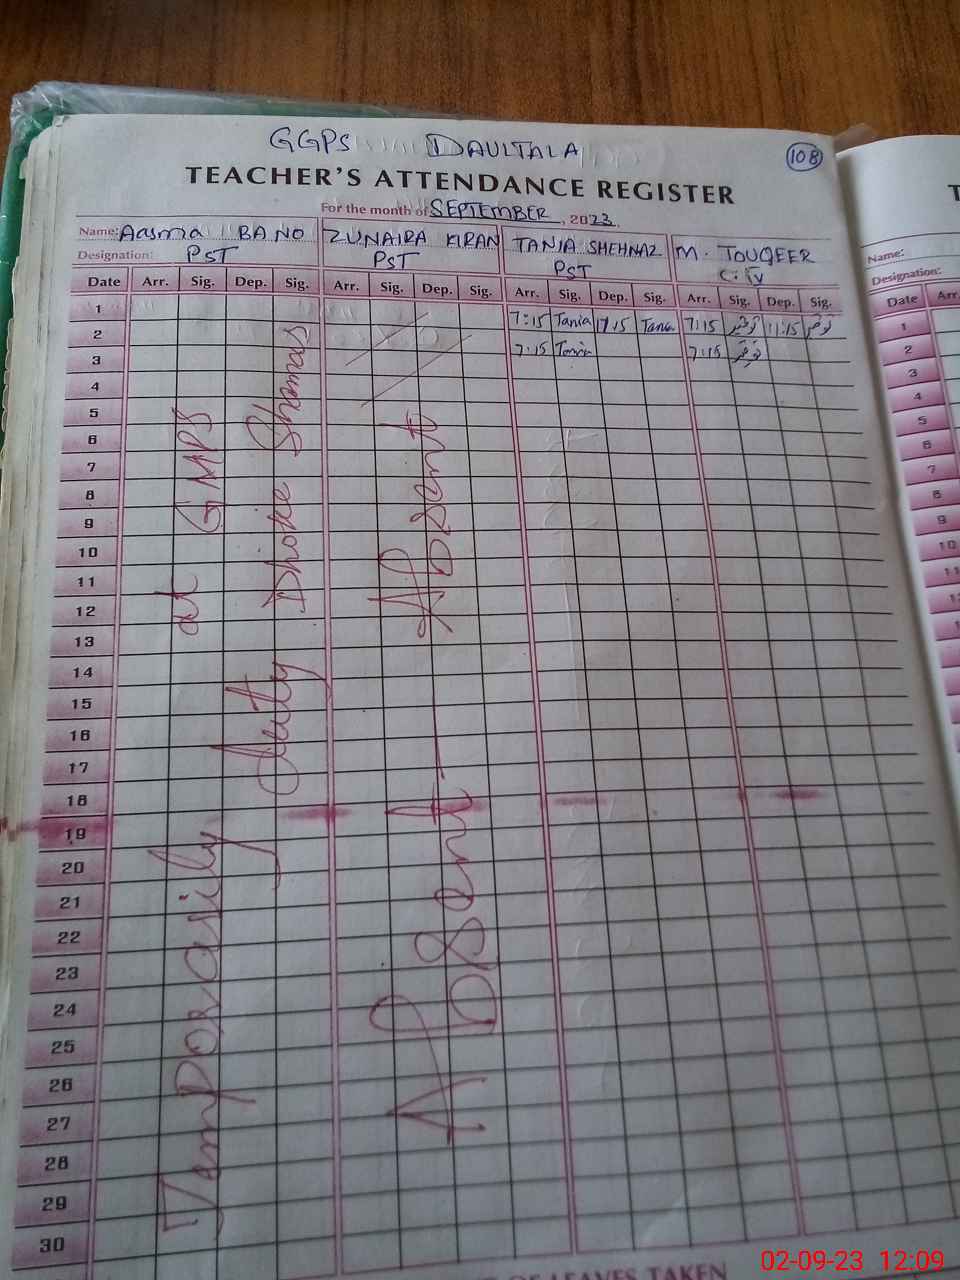 GGPS DAULTALA
108
TEACHER'S ATTENDANCE REGISTER
For the month of SEPTEMBER, 2023
Name: Aasma BANO ZUNAIRA KIRAN TANIA SHEHNAZ M. TOUQEER
Designation: PST PST PST C.IV
Date Arr. Sig. Dep. Sig. Arr. Sig. Dep. Sig. Arr. Sig. Dep. Sig. Arr. Sig. Dep. Sig.
1 7:15 Tania 17.15 Tania 7:15 توقیر 11:15 توقیر
2 7:15 Tania 7:15 توقیر
3
4
5
6
7
8
9
10
11
12
13
14
15
16
17
18
19
20
21
22
23
24
25
26
27
28
29
30
Temporarily duty
at GMPS Dhoke Shamas
Absent — Absent
OF LEAVES TAKEN
T
Name:
Designation:
Date Arr.
1
2
3
4
5
6
7
8
9
10
02-09-23 12:09